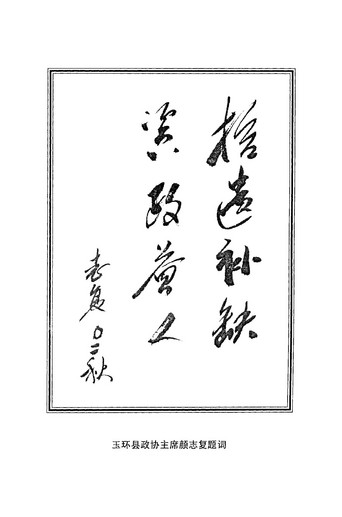 拾遗补缺
资政益人
志复 〇二秋
玉环县政协主席颜志复题词